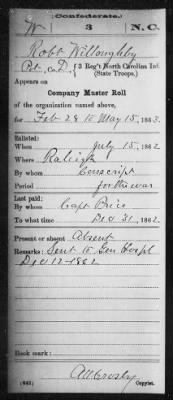 (Confederate.)
W 3 N.C.
Robt Willoughby
Pvt, Co. D, 3 Reg't North Carolina Inf.
(State Troops.)
Appears on
Company Muster Roll
of the organization named above,
for Feb 28 to May 15, 1863.
Enlisted:
When July 15, 1862
Where Raleigh
By whom Conscript
Period for the war
Last paid:
By whom Capt Price
To what time Dec 31, 1862.
Present or absent Absent
Remarks: Sent to Gen Hospl
Dec 12-1862
Book mark:
(642) Copyist.